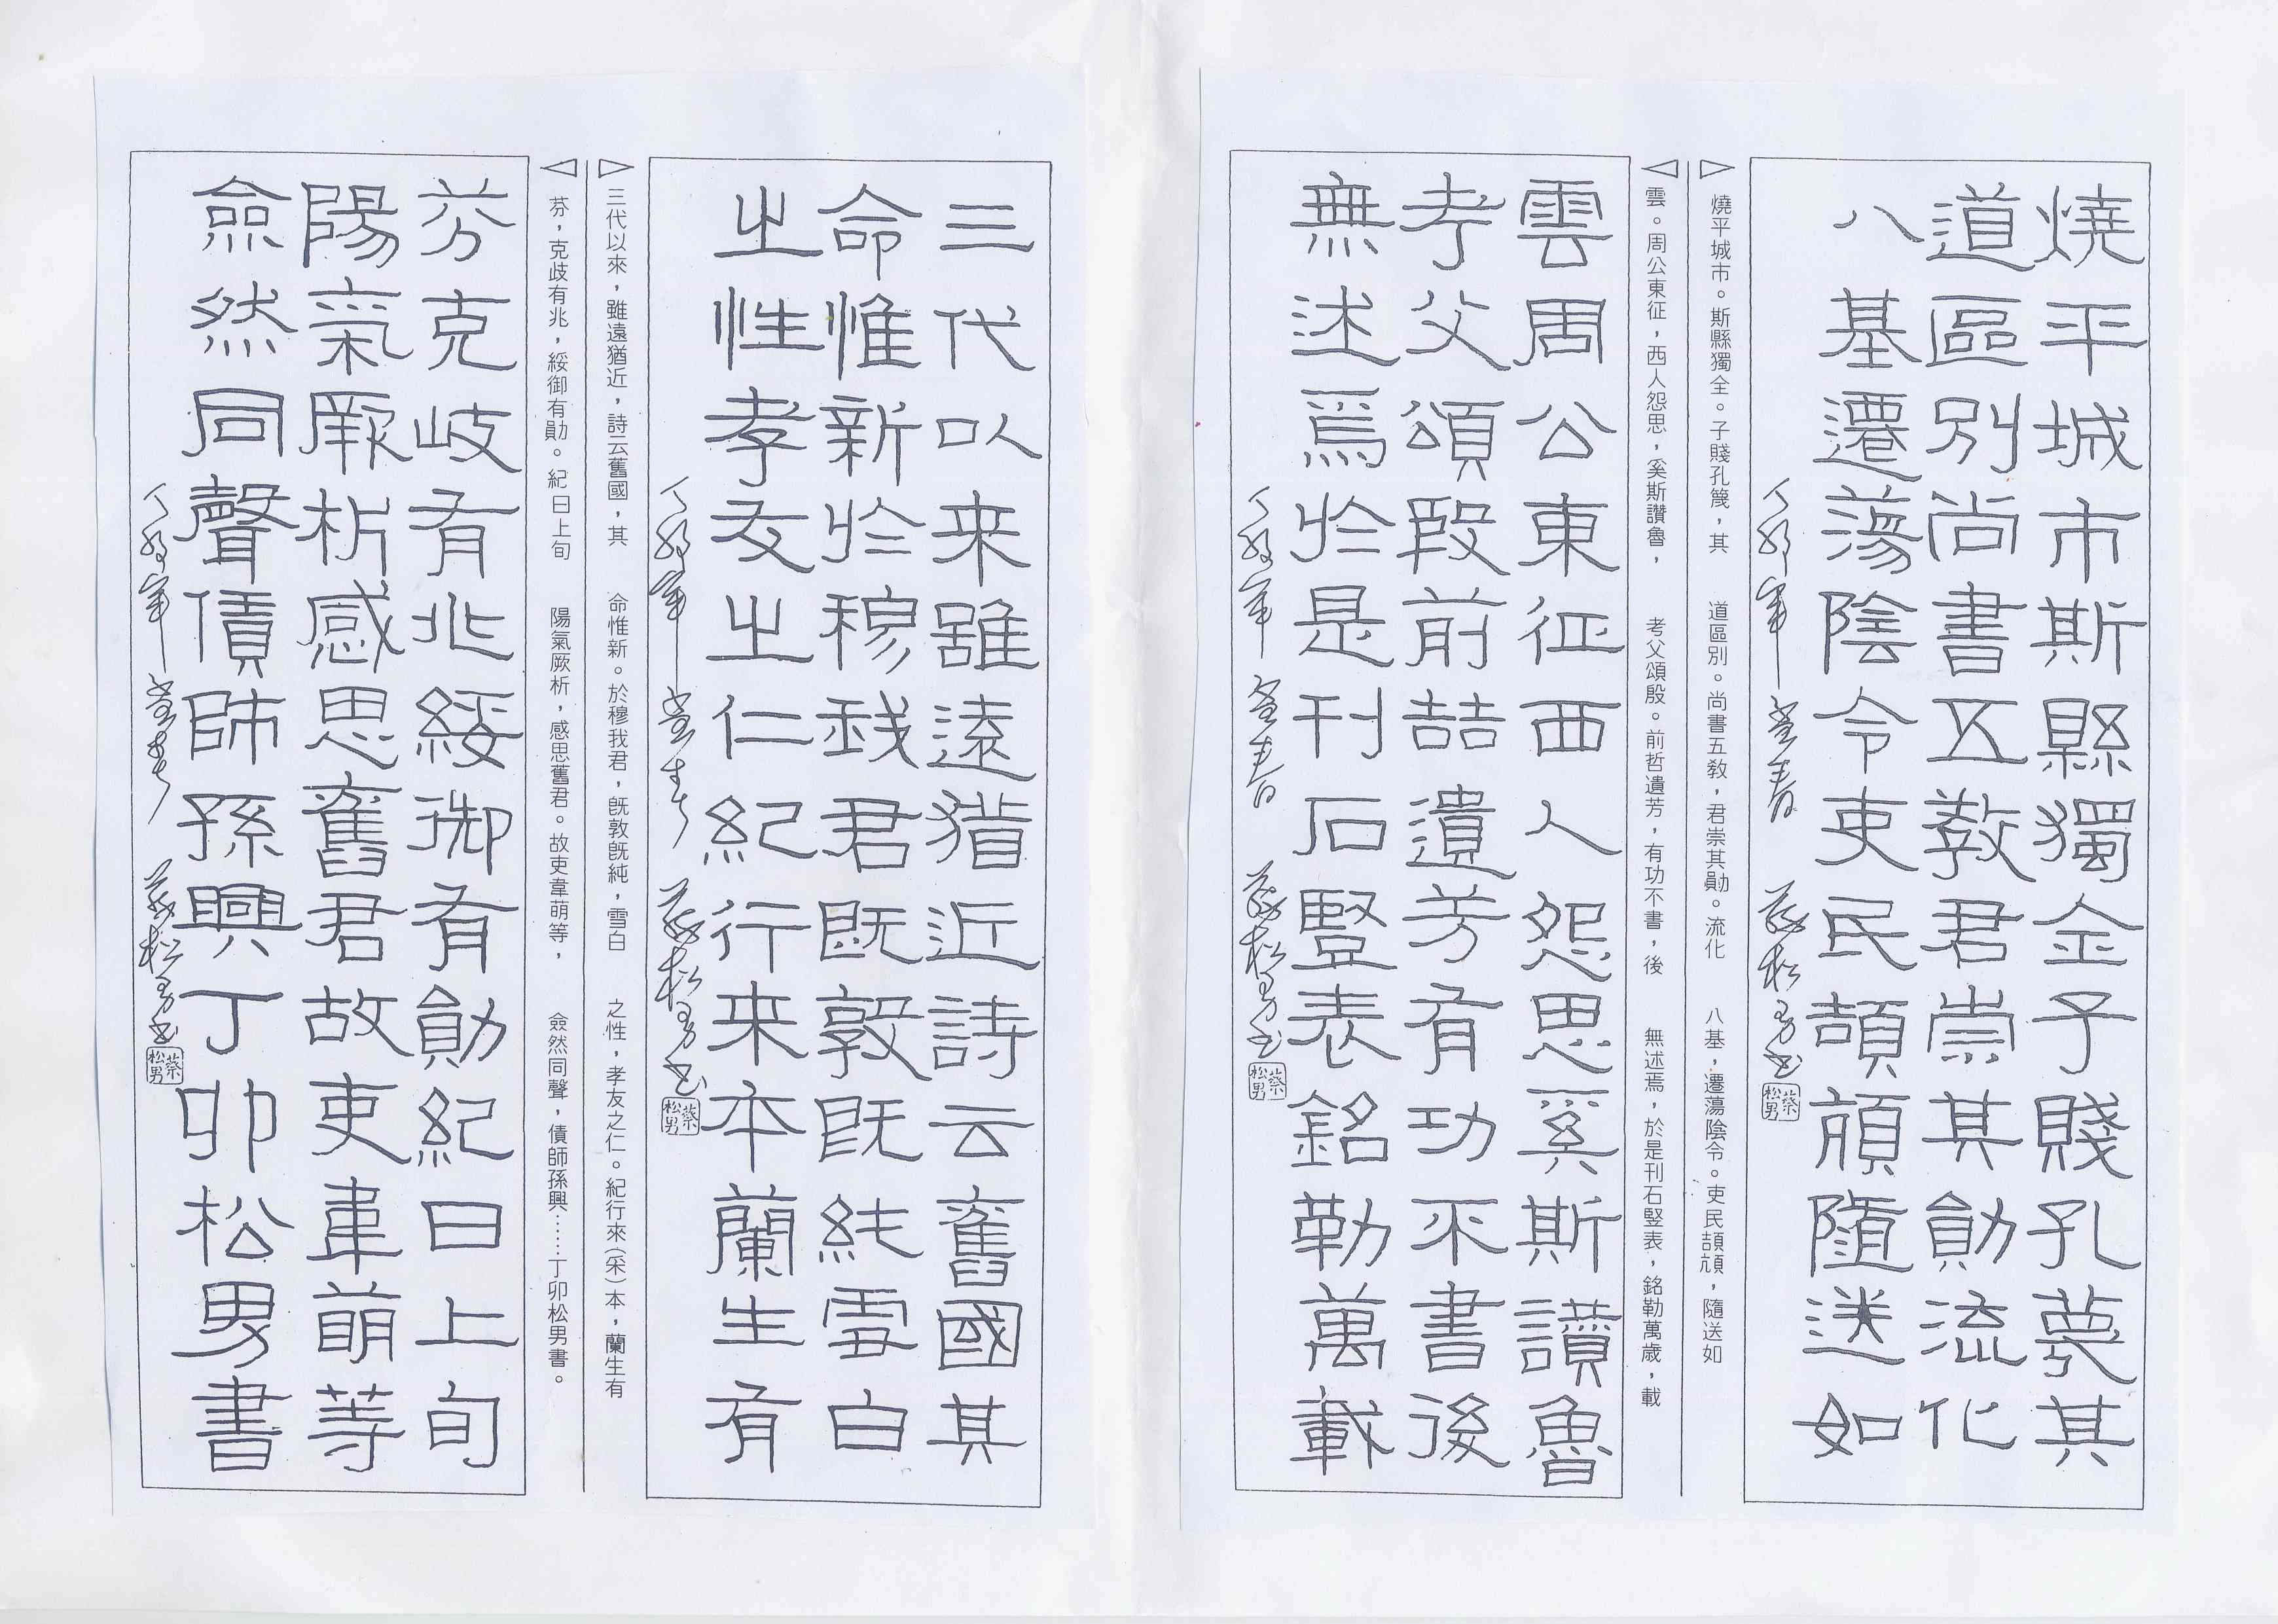 燒平城市斯縣獨全子賤孔蔑其
道區別尚書五教君崇其勛流化
八基遷蕩陰令吏民頡頏隨送如
蔡松男書
蔡松男
燒平城市。斯縣獨全。子賤孔篾，其
道區別。尚書五教，君崇其勛。流化
八基，遷蕩陰令。吏民頡頏，隨送如
雲。周公東征，西人怨思，奚斯讚魯，
考父頌殷。前哲遺芳，有功不書，後
無述焉，於是刊石豎表，銘勒萬歲，載
雲周公東征西人怨思奚斯讚魯
考父頌殷前喆遺芳有功不書後
無述焉於是刊石豎表銘勒萬載
蔡松男書
蔡松男
三代以来雖遠猶近詩云舊國其
命惟新於穆我君既敦既純雪白
之性孝友之仁紀行来本蘭生有
蔡松男書
蔡松男
三代以來，雖遠猶近，詩云舊國，其
命惟新。於穆我君，既敦既純，雪白
之性，孝友之仁。紀行來(采)本，蘭生有
芬，克歧有兆，綏御有勛。紀曰上旬
陽氣厥析，感思舊君。故吏韋萌等，
僉然同聲，債師孫興……丁卯松男書。
芬克岐有兆綏御有勛紀曰上旬
陽氣厥析感思舊君故吏韋萌等
僉然同聲債師孫興丁卯松男書
蔡松男書
蔡松男